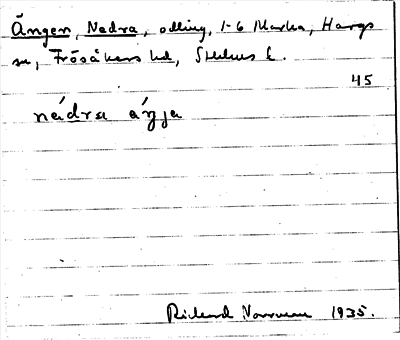 Ängen, Nedra, odling, 1-6 Marka, Hargs
sn, Frösåkers hd, Sthlms l.
45
nédra áŋja
Rickard 1935.